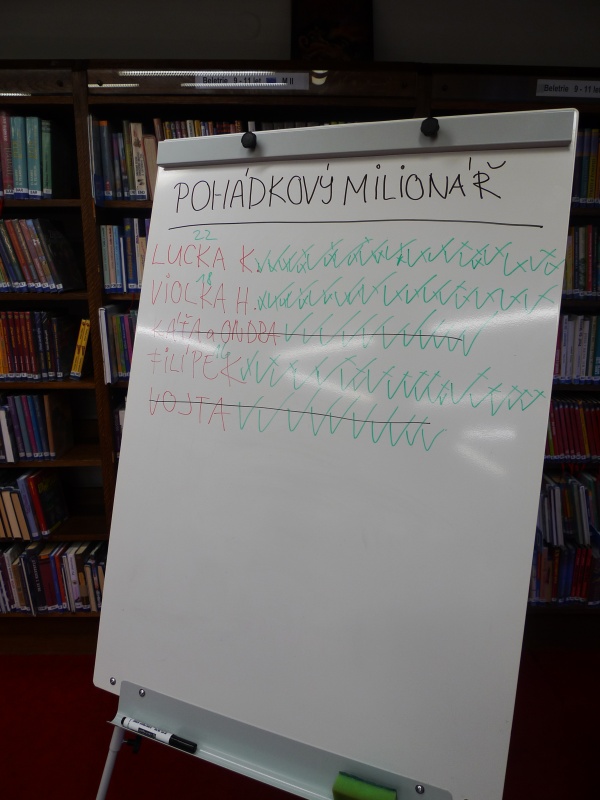 Beletrie 9 - 11 let M.II
Beletrie 9 - 11 let
POHÁDKOVÝ MILIONÁŘ
22
LUCKA K.
18
VIOLKA H.
KÁŤA a ONDRA
FILÍPEK
VOJTA